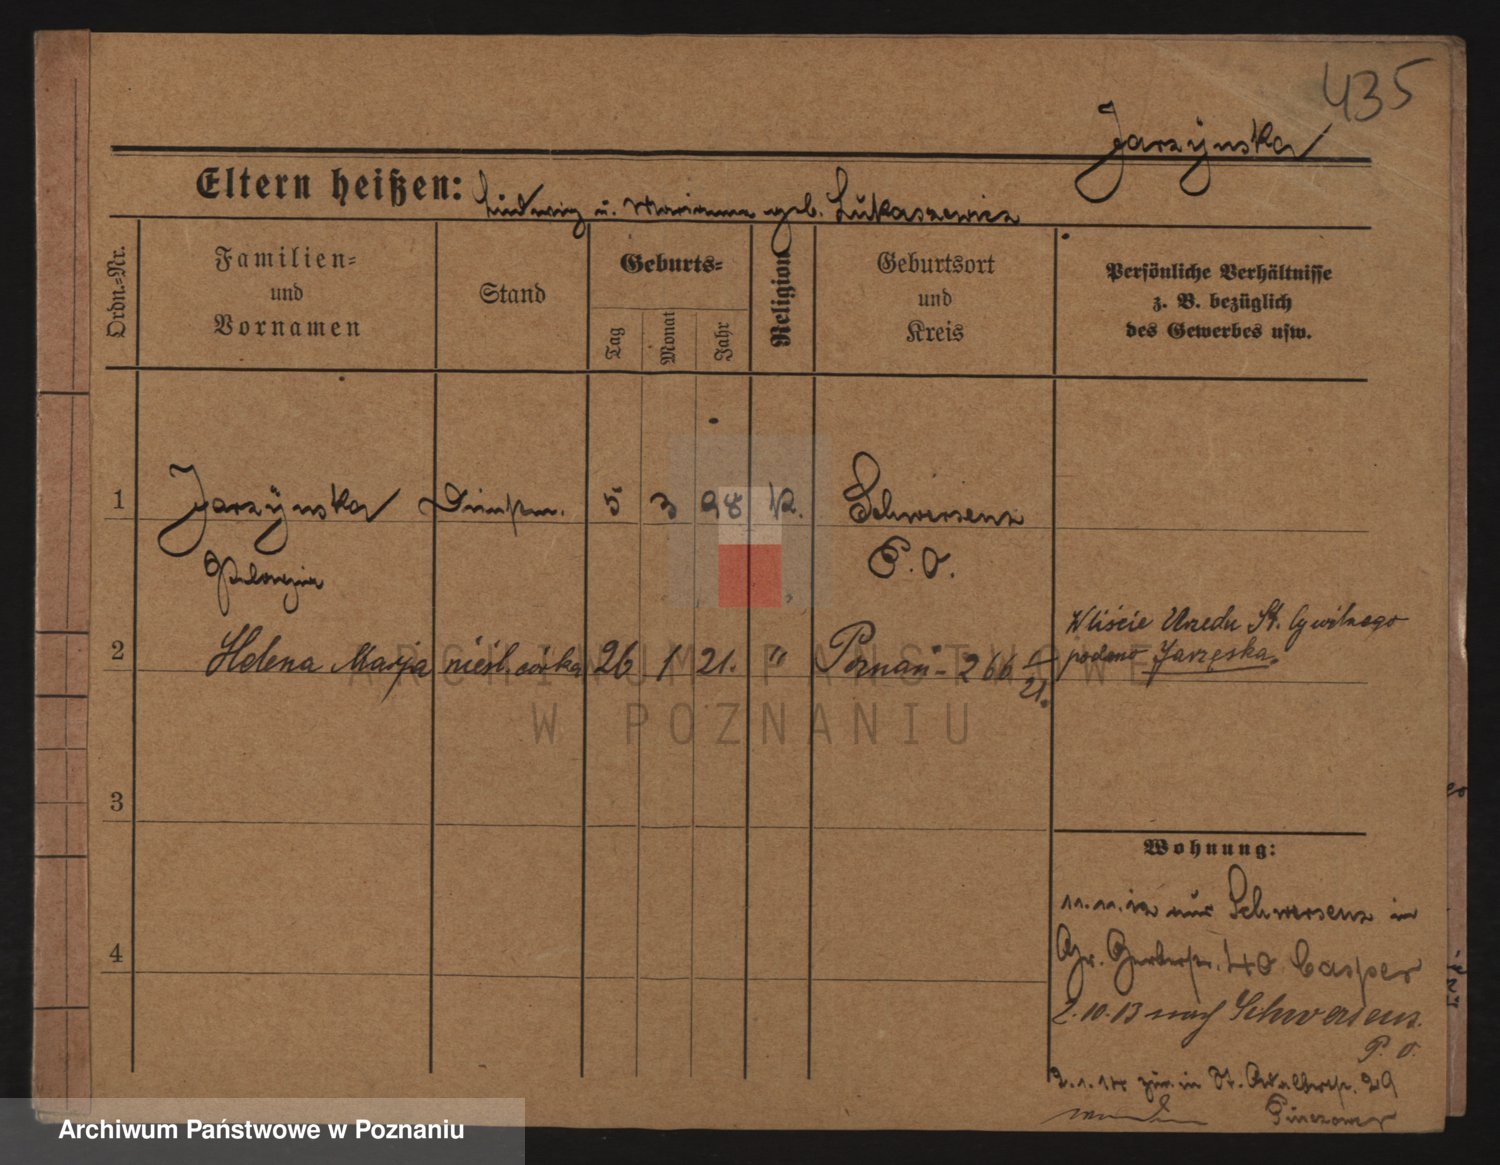 435
Jarzÿnska
Eltern heißen: Ludwig u. Marianna geb. Lukaszewicz
Ordn.=Nr.
Familien=
und
Vornamen
Stand
Geburts=
Tag
Monat
Jahr
Religion
Geburtsort
und
Kreis
Persönliche Verhältnisse
z. B. bezüglich
des Gewerbes usw.
1 Jarzÿnska Dienstm. 5 3 98 K. Schwersenz
Pelagia P. O.
2 Helena Marja nieśl. córka 26 1 21. " Poznań - 266/21.
W liście Urzędu St. Cywilnego
podano Jarzęska.
3
4
Wohnung:
11.11.12 aus Schwersenz in
Gr. Gerberstr. 40 Casper
2.10.13 nach Schwersenz
P. O.
2.1.14 zur. in St. Adalbertstr. 29
ARCHIWUM PAŃSTWOWE
W POZNANIU
Archiwum Państwowe w Poznaniu